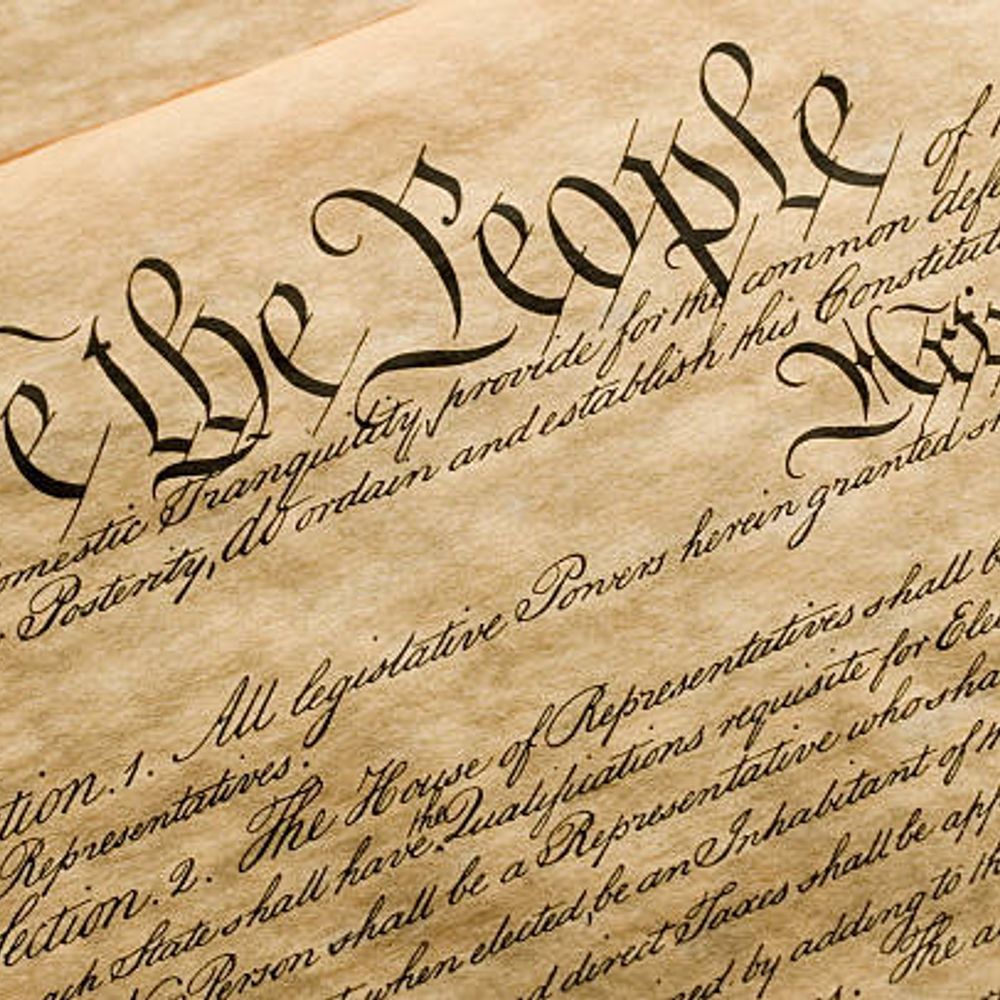 e the People of
omestic Tranquility, provide for the common defe
Posterity, do ordain and establish this Constituti
Arti
tion. 1. All legislative Powers herein granted s
Representatives.
Section. 2. The House of Representatives shall b
ach State shall have the Qualifications requisite for Elec
Person shall be a Representative who sha
when elected, be an Inhabitant of
d direct Taxes shall be app
ned by adding to th
The a